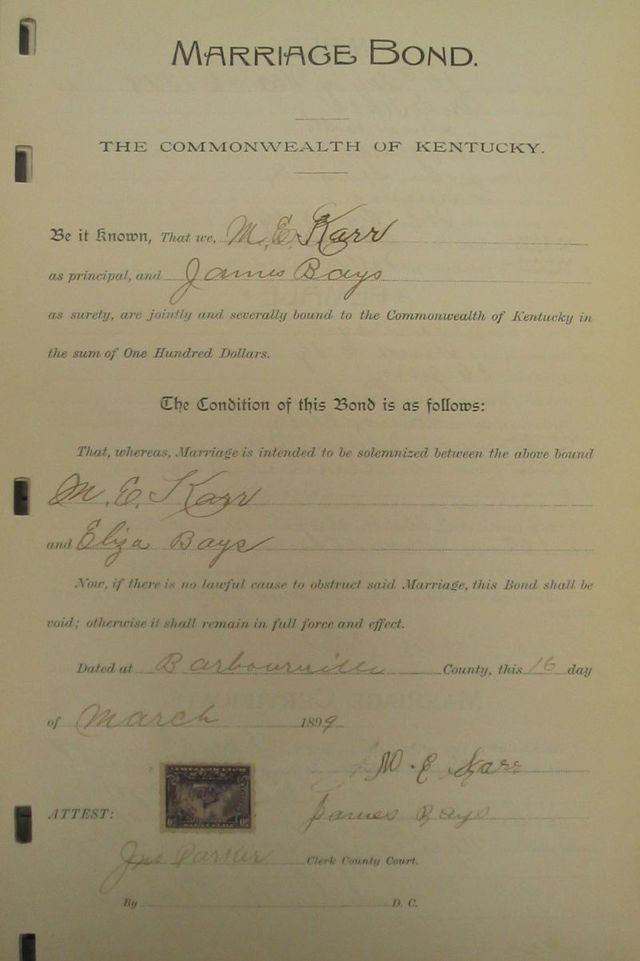 MARRIAGE BOND.
THE COMMONWEALTH OF KENTUCKY.
Be it Known, That we, M. E. Karr
as principal, and James Bays
as surety, are jointly and severally bound to the Commonwealth of Kentucky in
the sum of One Hundred Dollars.
The Condition of this Bond is as follows:
That, whereas, Marriage is intended to be solemnized between the above bound
M. E. Karr
and Eliza Bays
Now, if there is no lawful cause to obstruct said Marriage, this Bond shall be
void; otherwise it shall remain in full force and effect.
Dated at Barbourville County, this 16 day
of March 1899
M. E. Karr
ATTEST: James Bays
Jno Parker Clerk County Court.
By D. C.